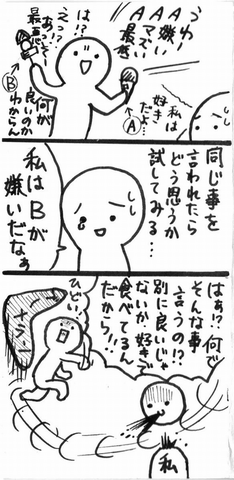 うわー
A嫌い
Aマズい
最悪
私は
好き
だよ…
A
は!?
えっ!?
あっそー
最悪
何が
良いのか
わからん
B
同じ事を
言われたら
どう思うか
試してみる…
私はBが
嫌いだなぁ
はぁ!?何で
そんな事
言うの!?
別に良いじゃ
ないか好きで
食べてるん
だから!!
ひどい!
私